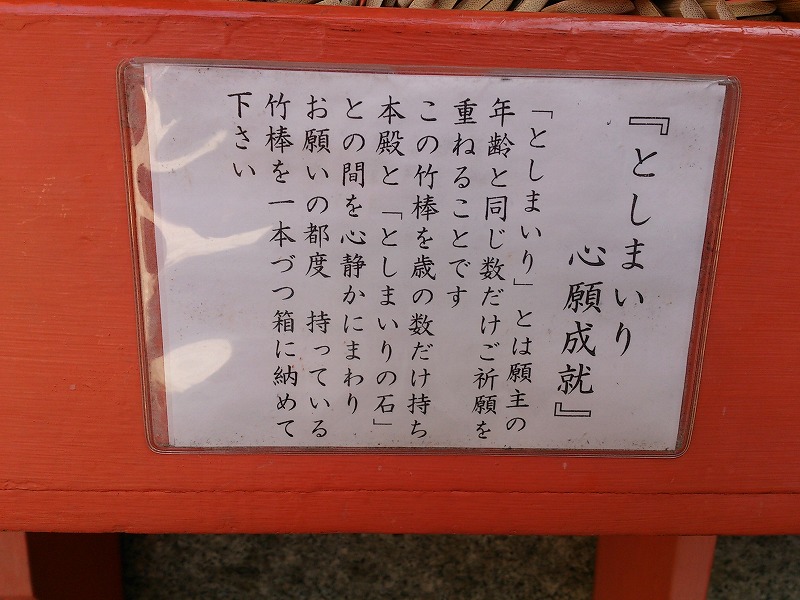 『としまいり
心願成就』
「としまいり」とは願主の
年齢と同じ数だけご祈願を
重ねることです
この竹棒を歳の数だけ持ち
本殿と「としまいりの石」
との間を心静かにまわり
お願いの都度　持っている
竹棒を一本づつ箱に納めて
下さい